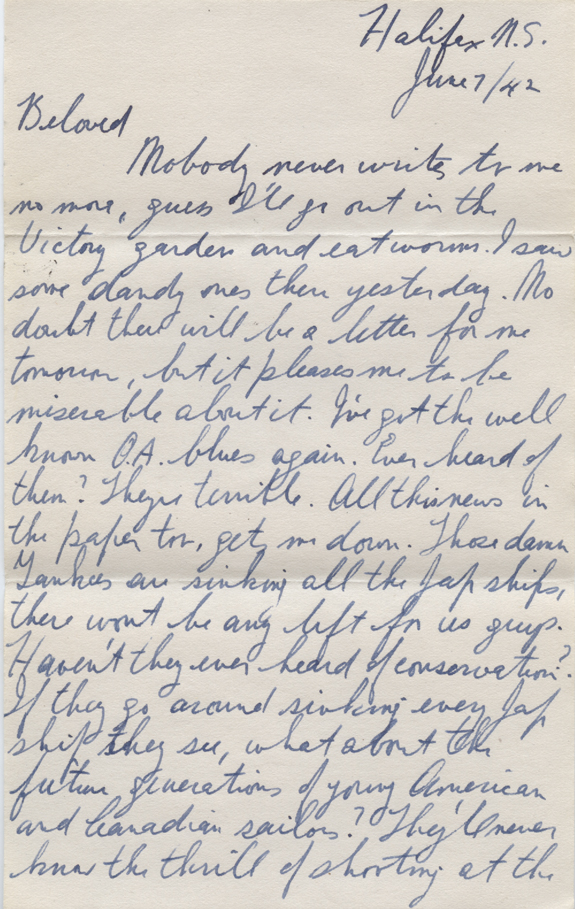 Halifax N.S.
June 7/42
Beloved
Mobody never writes to me
no more, guess I'll go out in the
Victory garden and eat worms. I saw
some dandy ones there yesterday. No
doubt there will be a letter for me
tomorrow, but it pleases me to be
miserable about it. I've got the well
known O.A. blues again. Ever heard of
them? They're terrible. All this news in
the paper too, gets me down. Those damn
Yankees are sinking all the Jap ships,
there wont be any left for us guys.
Haven't they ever heard of conservation?
If they go around sinking every Jap
ship they see, what about the
future generations of young American
and Canadian sailors? They'll never
know the thrill of shooting at the